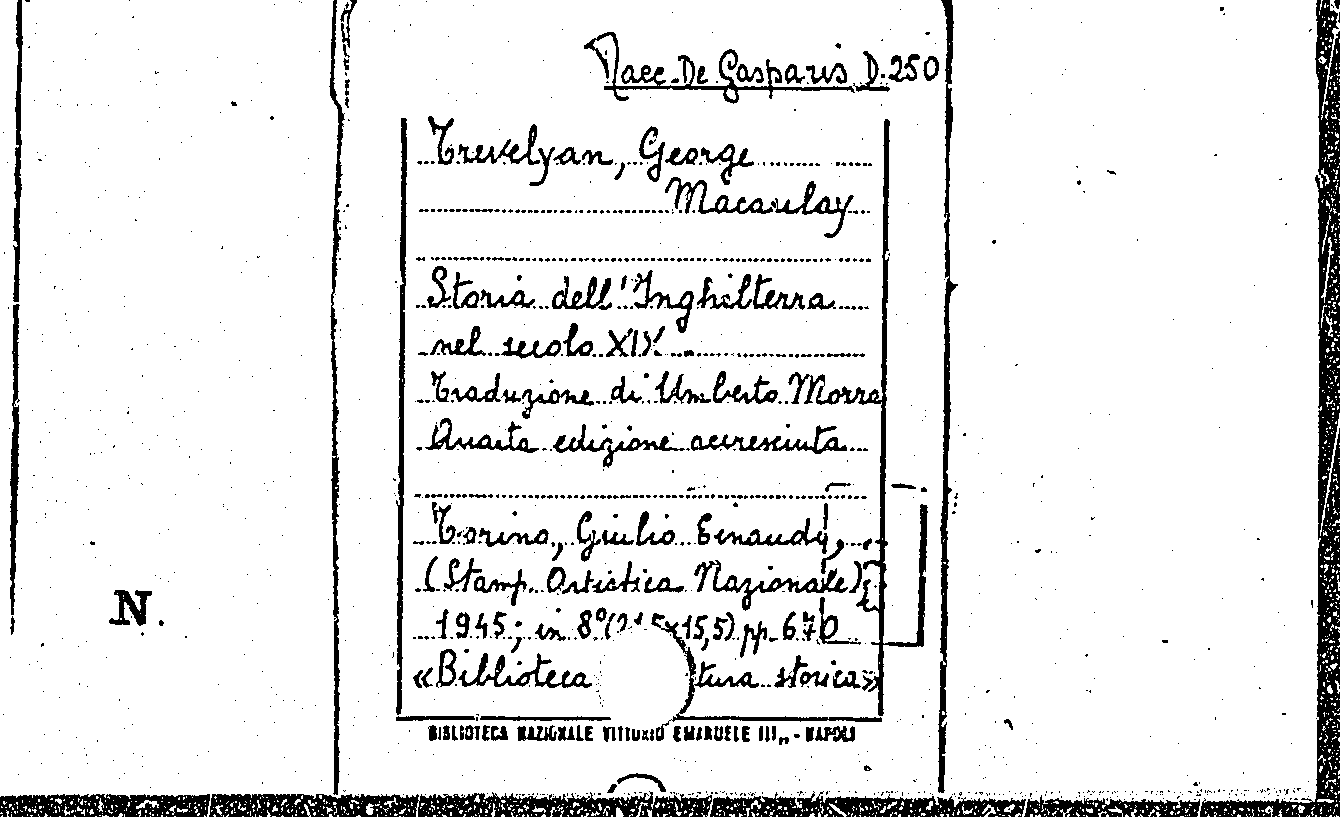 Racc. De Gasparis D.250
Trevelyan, George
Macaulay
Storia dell'Inghilterra
nel secolo XIX
Traduzione di Umberto Morra
Quarta edizione accresciuta
Torino, Giulio Einaudi,
(Stamp. Artistica Nazionale)
1945; in 8º(21,5x15,5) pp. 670
«Biblioteca tura storica»
BIBLIOTECA NAZIONALE VITTORIO EMANUELE III,, - NAPOLI
N.